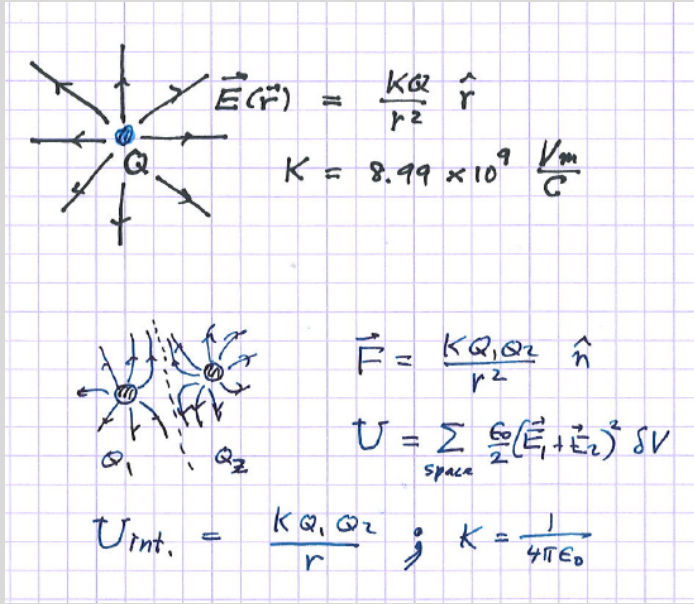 E⃗(r⃗) = KQ/r² r̂
Q
K = 8.99 × 10⁹ Vm/C
F⃗ = KQ₁Q₂/r² n̂
Q₁ Q₂
U = Σ space ε₀/2 (E⃗₁+E⃗₂)² δV
Uint. = KQ₁Q₂/r ; K = 1/4πε₀